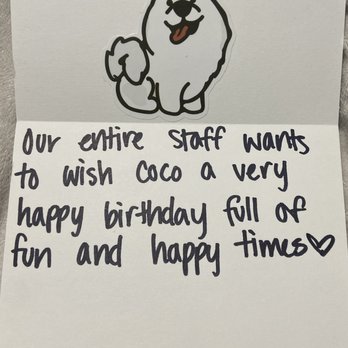 Our entire staff wants
to wish Coco a very
happy birthday full of
fun and happy times♡